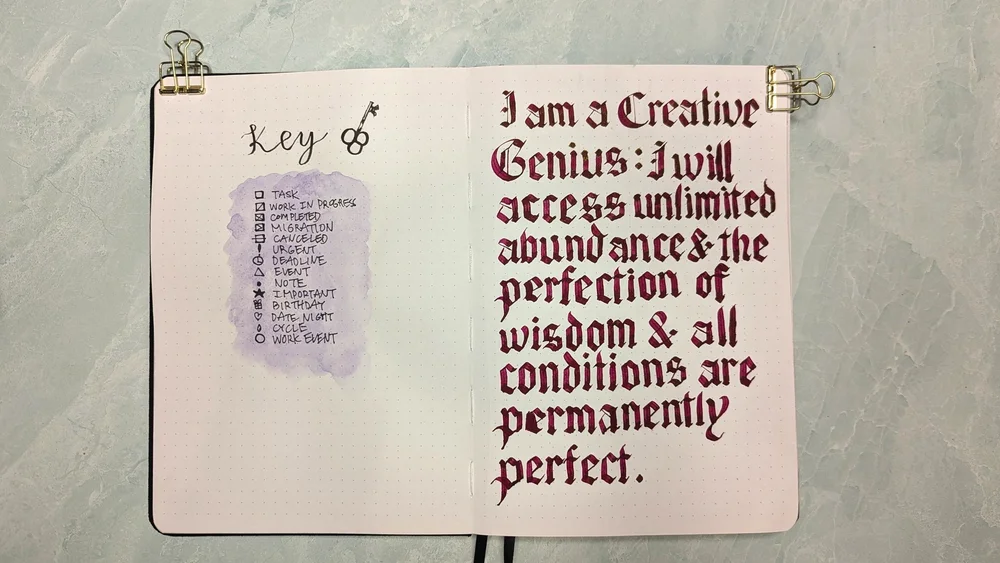 Key
TASK
WORK IN PROGRESS
COMPLETED
MIGRATION
CANCELED
URGENT
DEADLINE
EVENT
NOTE
IMPORTANT
BIRTHDAY
DATE NIGHT
CYCLE
WORK EVENT
I am a Creative
Genius: I will
access unlimited
abundance & the
perfection of
wisdom & all
conditions are
permanently
perfect.